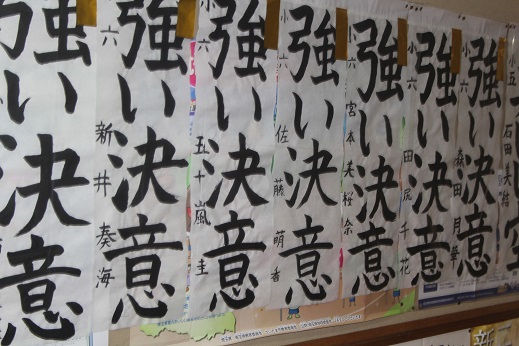 強い決意
強い決意
小六 新井奏海
強い決意
小六 五十嵐圭
強い決意
小六 佐藤萌香
強い決意
小六 宮本美桜奈
強い決意
小六 田尻千花
強い決意
小六 森田月華
空
小五 石田美結